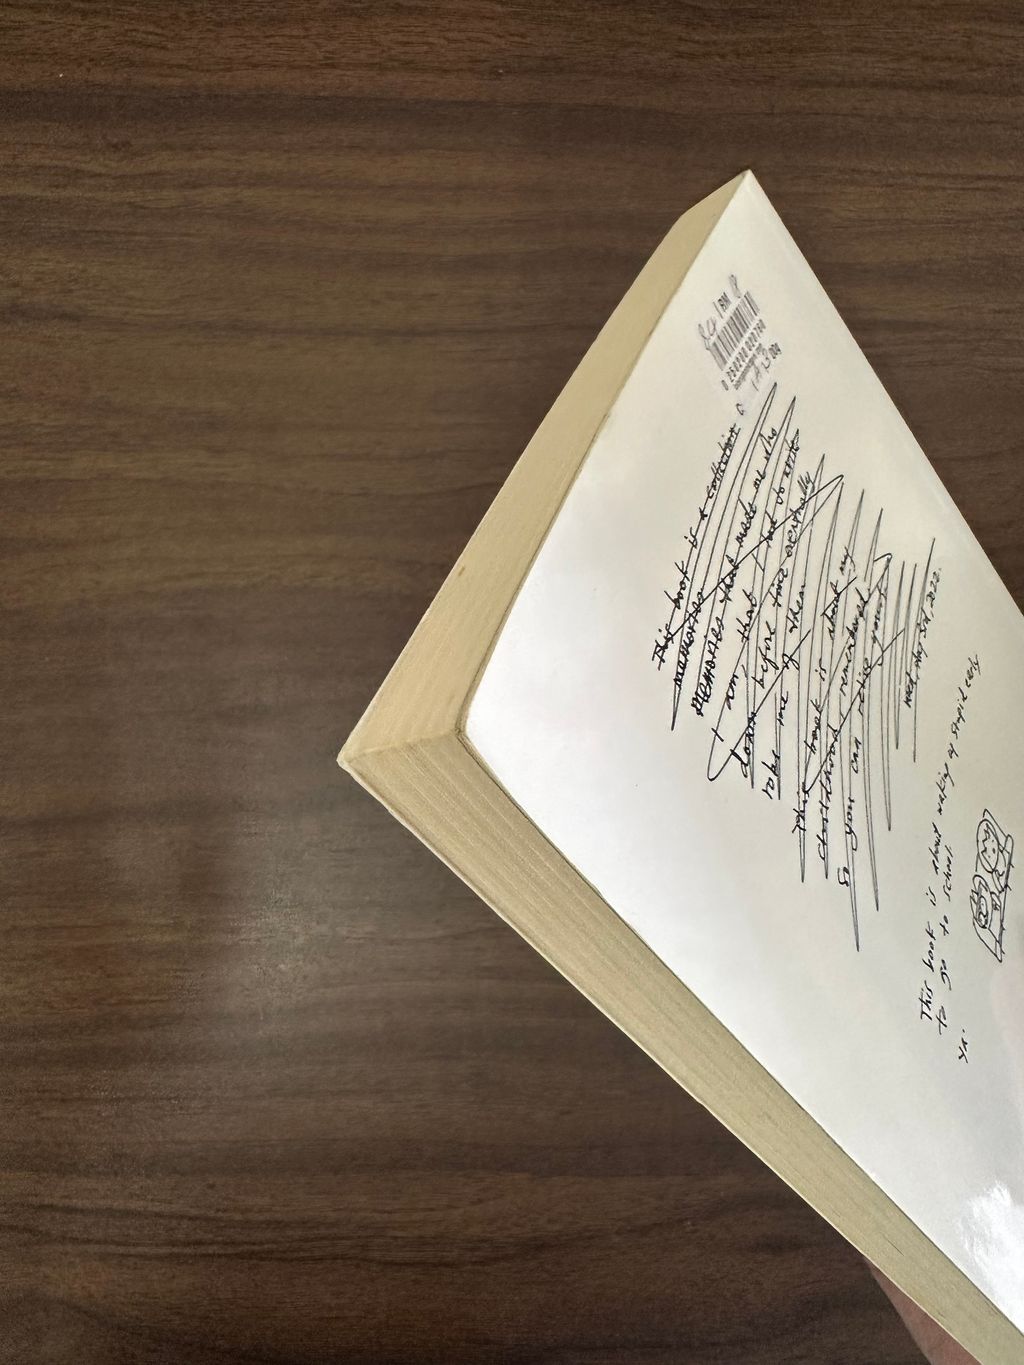 This book is a collection
memories
memories that made me who
I am, that I had to write
down before time eventually
robs me of them
This book is about my
childhood, remembered
as you can notice yourself
Wed, May 3rd, 2022.
This book is about waking up stupid early
to go to school.
Ya.